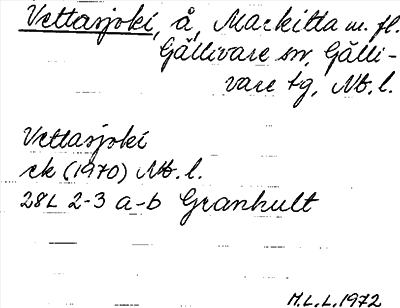 Vettasjoki, å, Markitta m. fl.
Gällivare sn, Gälli-
vare tg, Nb. l.
Vettasjoki
ek (1970) Nb. l.
28L 2-3 a-b Granhult
M.L.L. 1972